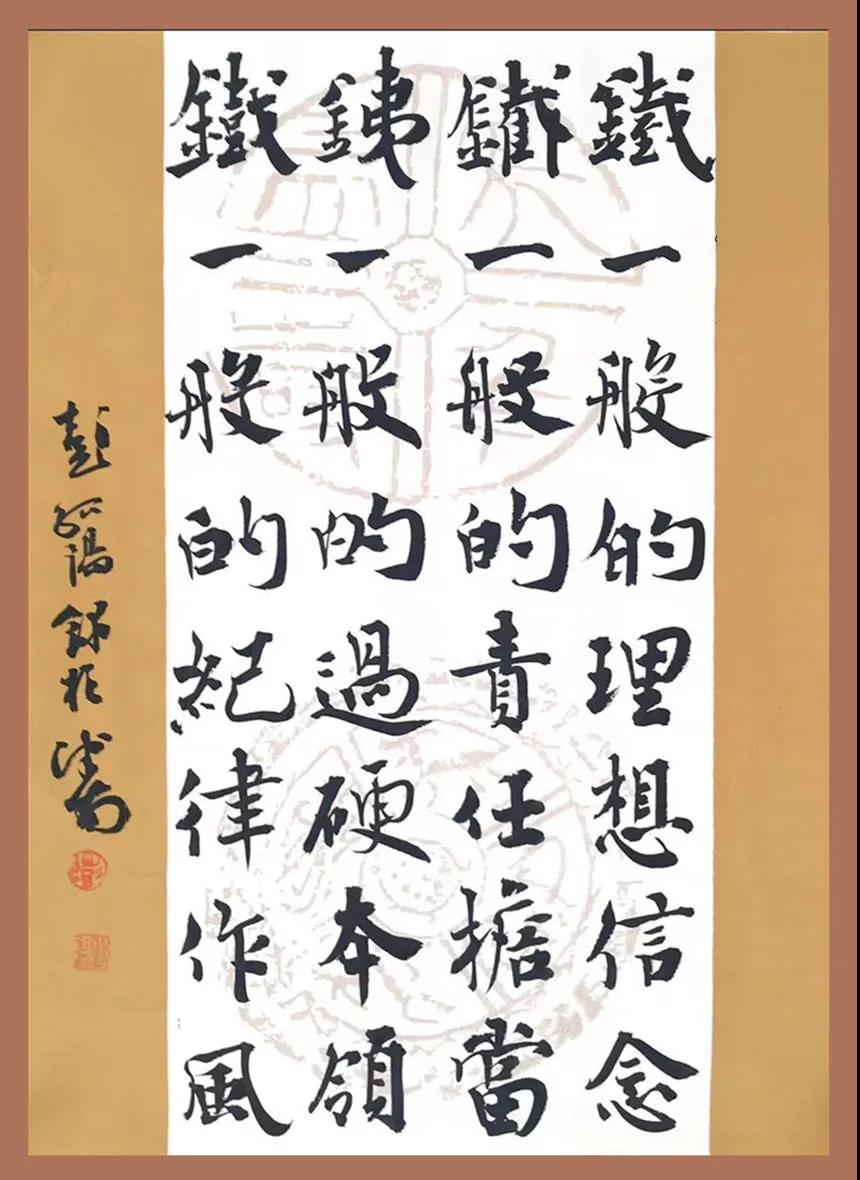 鐵一般的理想信念
鐵一般的責任擔當
銕一般的過硬本領
鐵一般的紀律作風
彭